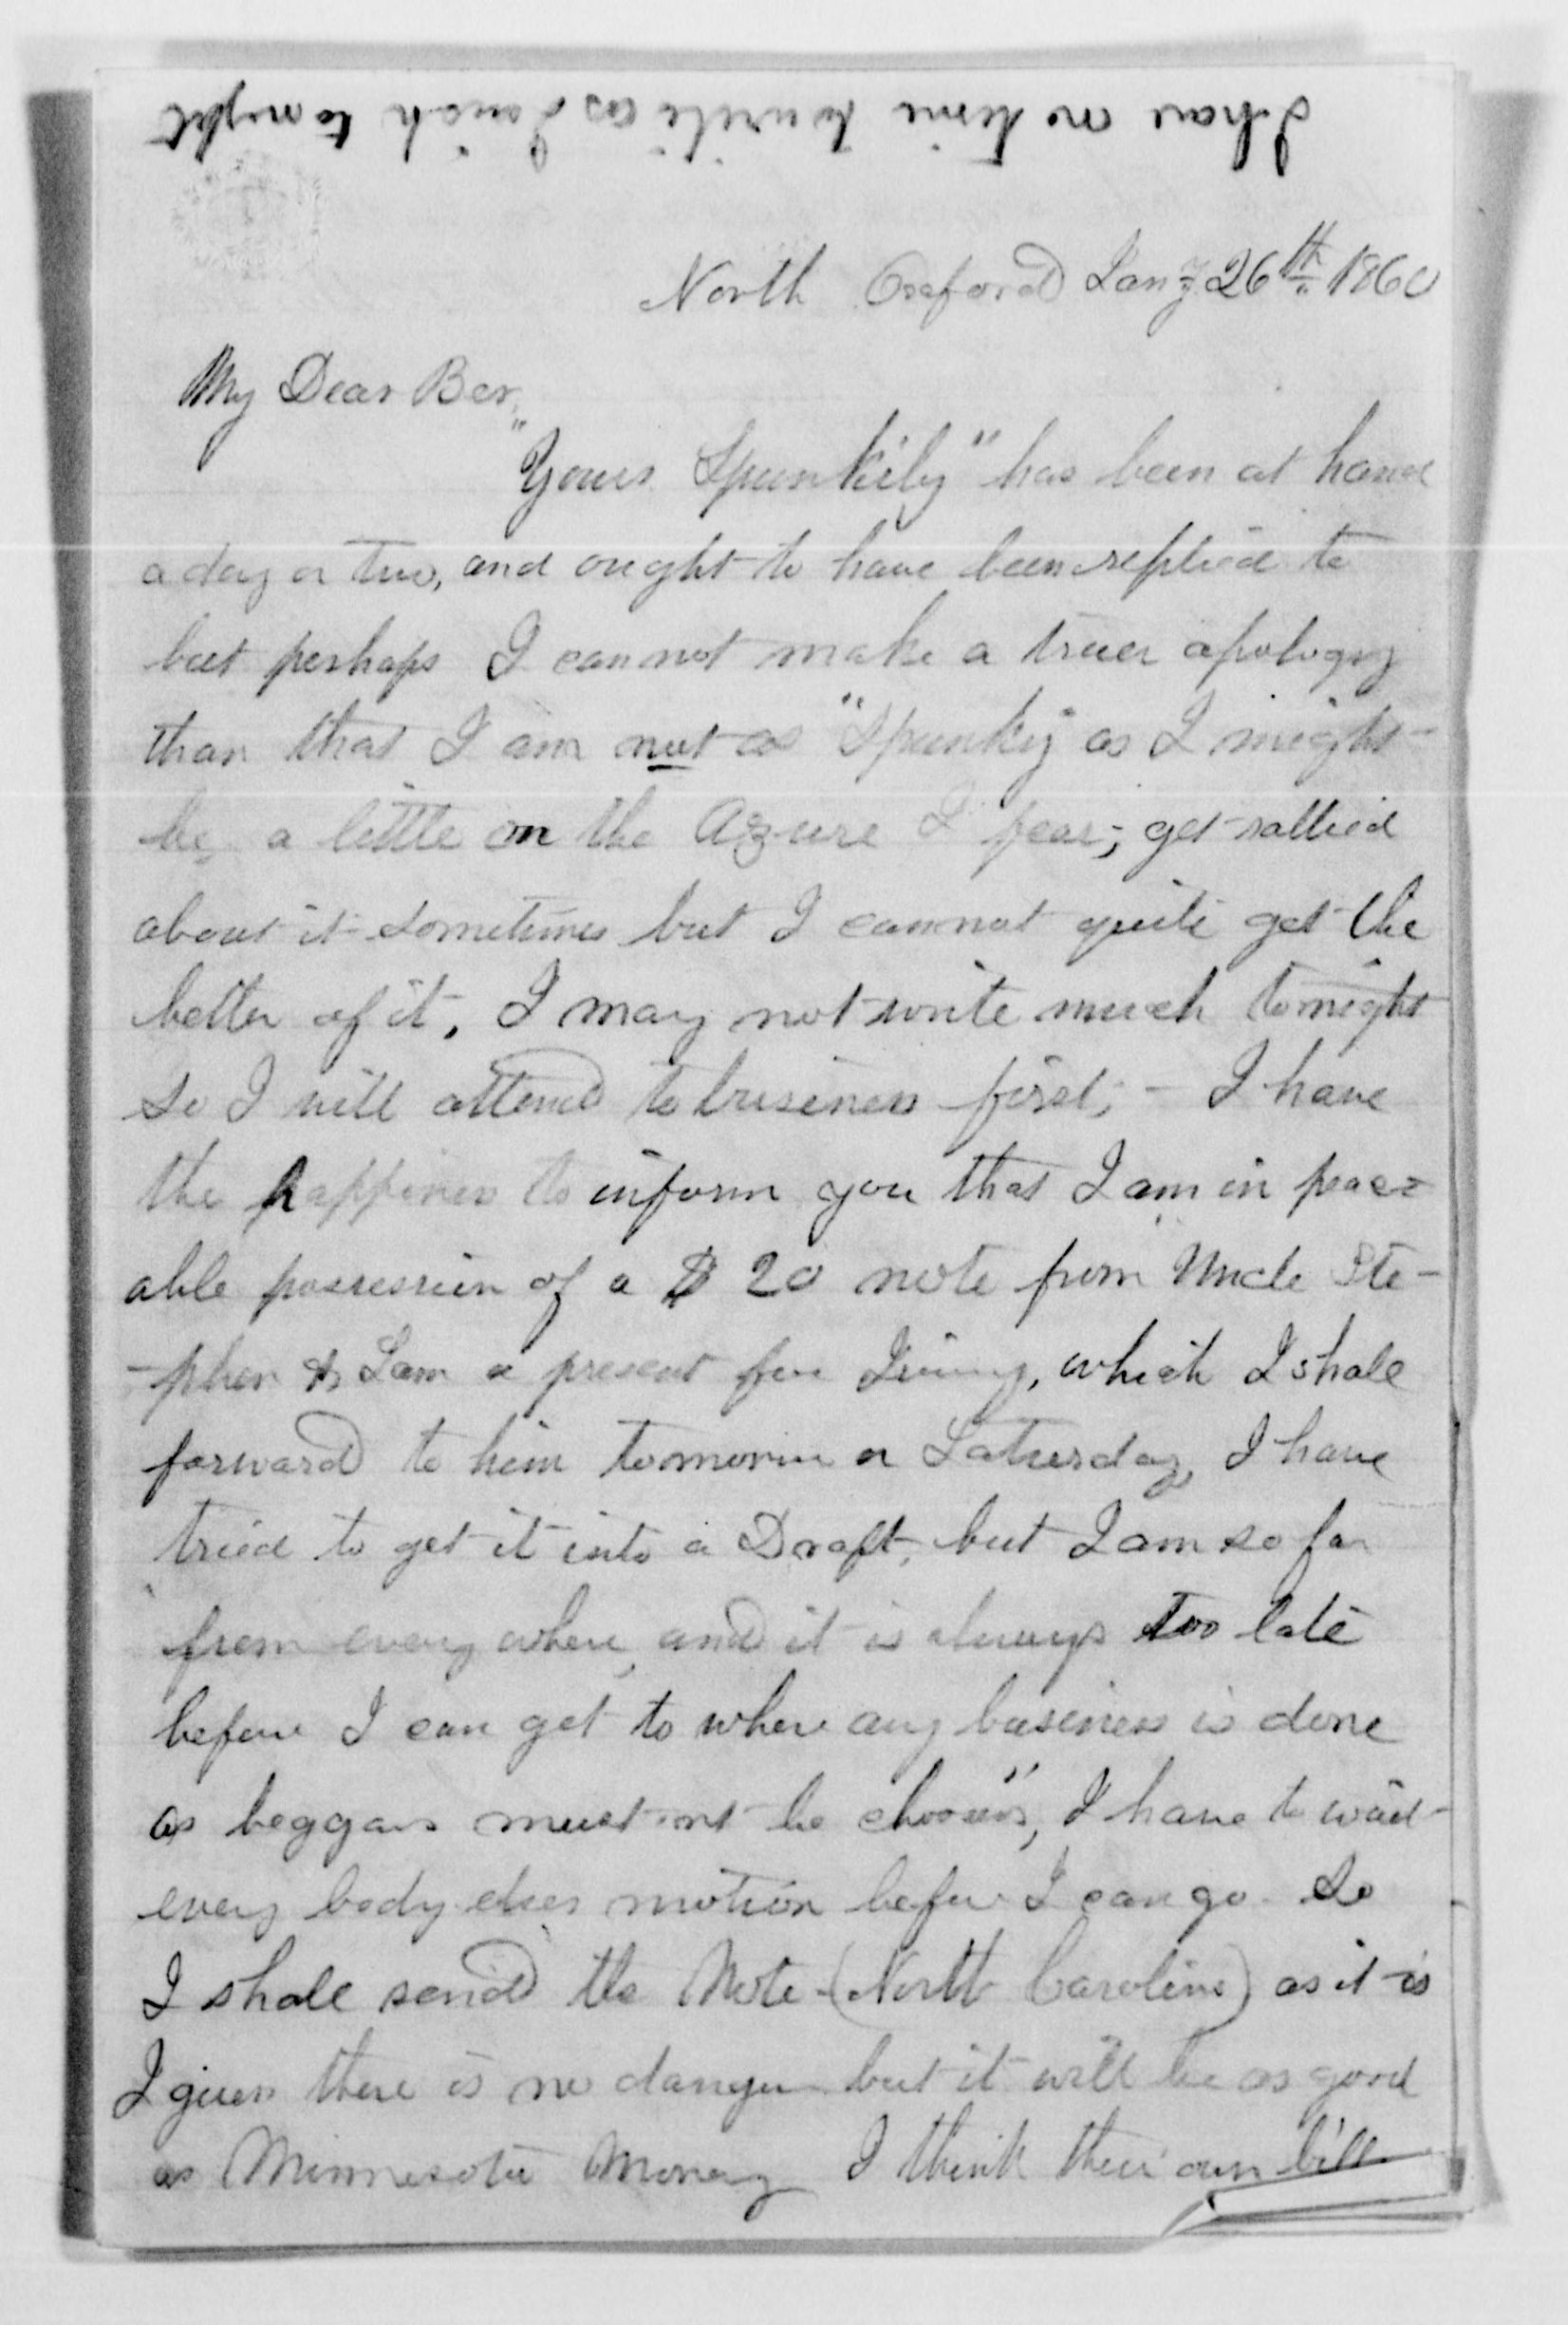 I have no time to write as I wish to night
North Oxford Jany 26th 1860
My Dear Ber,
"Yours Spunkily" has been at hand
a day or two, and ought to have been replied to
but perhaps I cannot make a truer apology
than that I am not as "Spunky" as I might
be, a little on the Azure I fear; get rallied
about it sometimes but I cannot quite get the
better of it, I may not write much tonight
so I will attend to business first; - I have
the happiness to inform you that I am in peac=
able possession of a $20 note from Uncle Ste-
-phen & Sam a present for Irving, which I shall
forward to him tomorrow or Saturday, I have
tried to get it into a Draft, but I am so far
from every where, and it is always too late
before I can get to where any business is done
as beggars must not be choosers", I have to wait
every body elses motion before I can go - So
I shall send the Note - (North Carolina) as it is
I guess there is no danger but it will be as good
as Minnesota Money I think their own bill